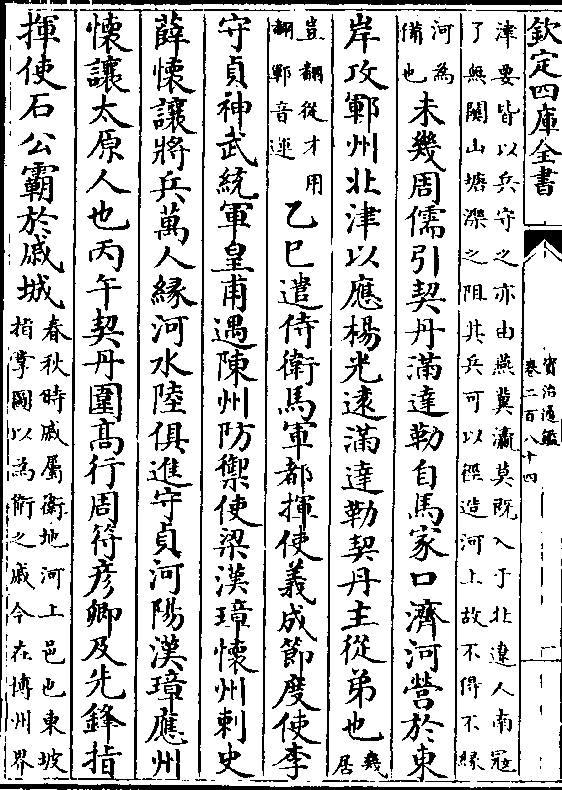 欽定四庫全書
資治通鑑
卷二百八十四
二
津要皆以兵守之亦由燕冀瀛莫既入于北遼人南冦
了無關山塘濼之阻其兵可以徑造河上故不得不緣
河為
備也
未幾周儒引契丹滿達勒自馬家口濟河營於東
岸攻鄆州北津以應楊光逺滿達勒契丹主從弟也
幾
居
豈翻從才用
翻鄆音運
乙巳遣侍衛馬軍都揮使義成節度使李
守貞神武統軍皇甫遇陳州防禦使梁漢璋懷州刺史
薛懷讓將兵萬人縁河水陸俱進守貞河陽漢璋應州
懷讓太原人也丙午契丹圍髙行周符彥卿及先鋒指
揮使石公霸於戚城
春秋時戚屬衛地河上邑也東坡
指掌圖以為衛之戚今在博州界